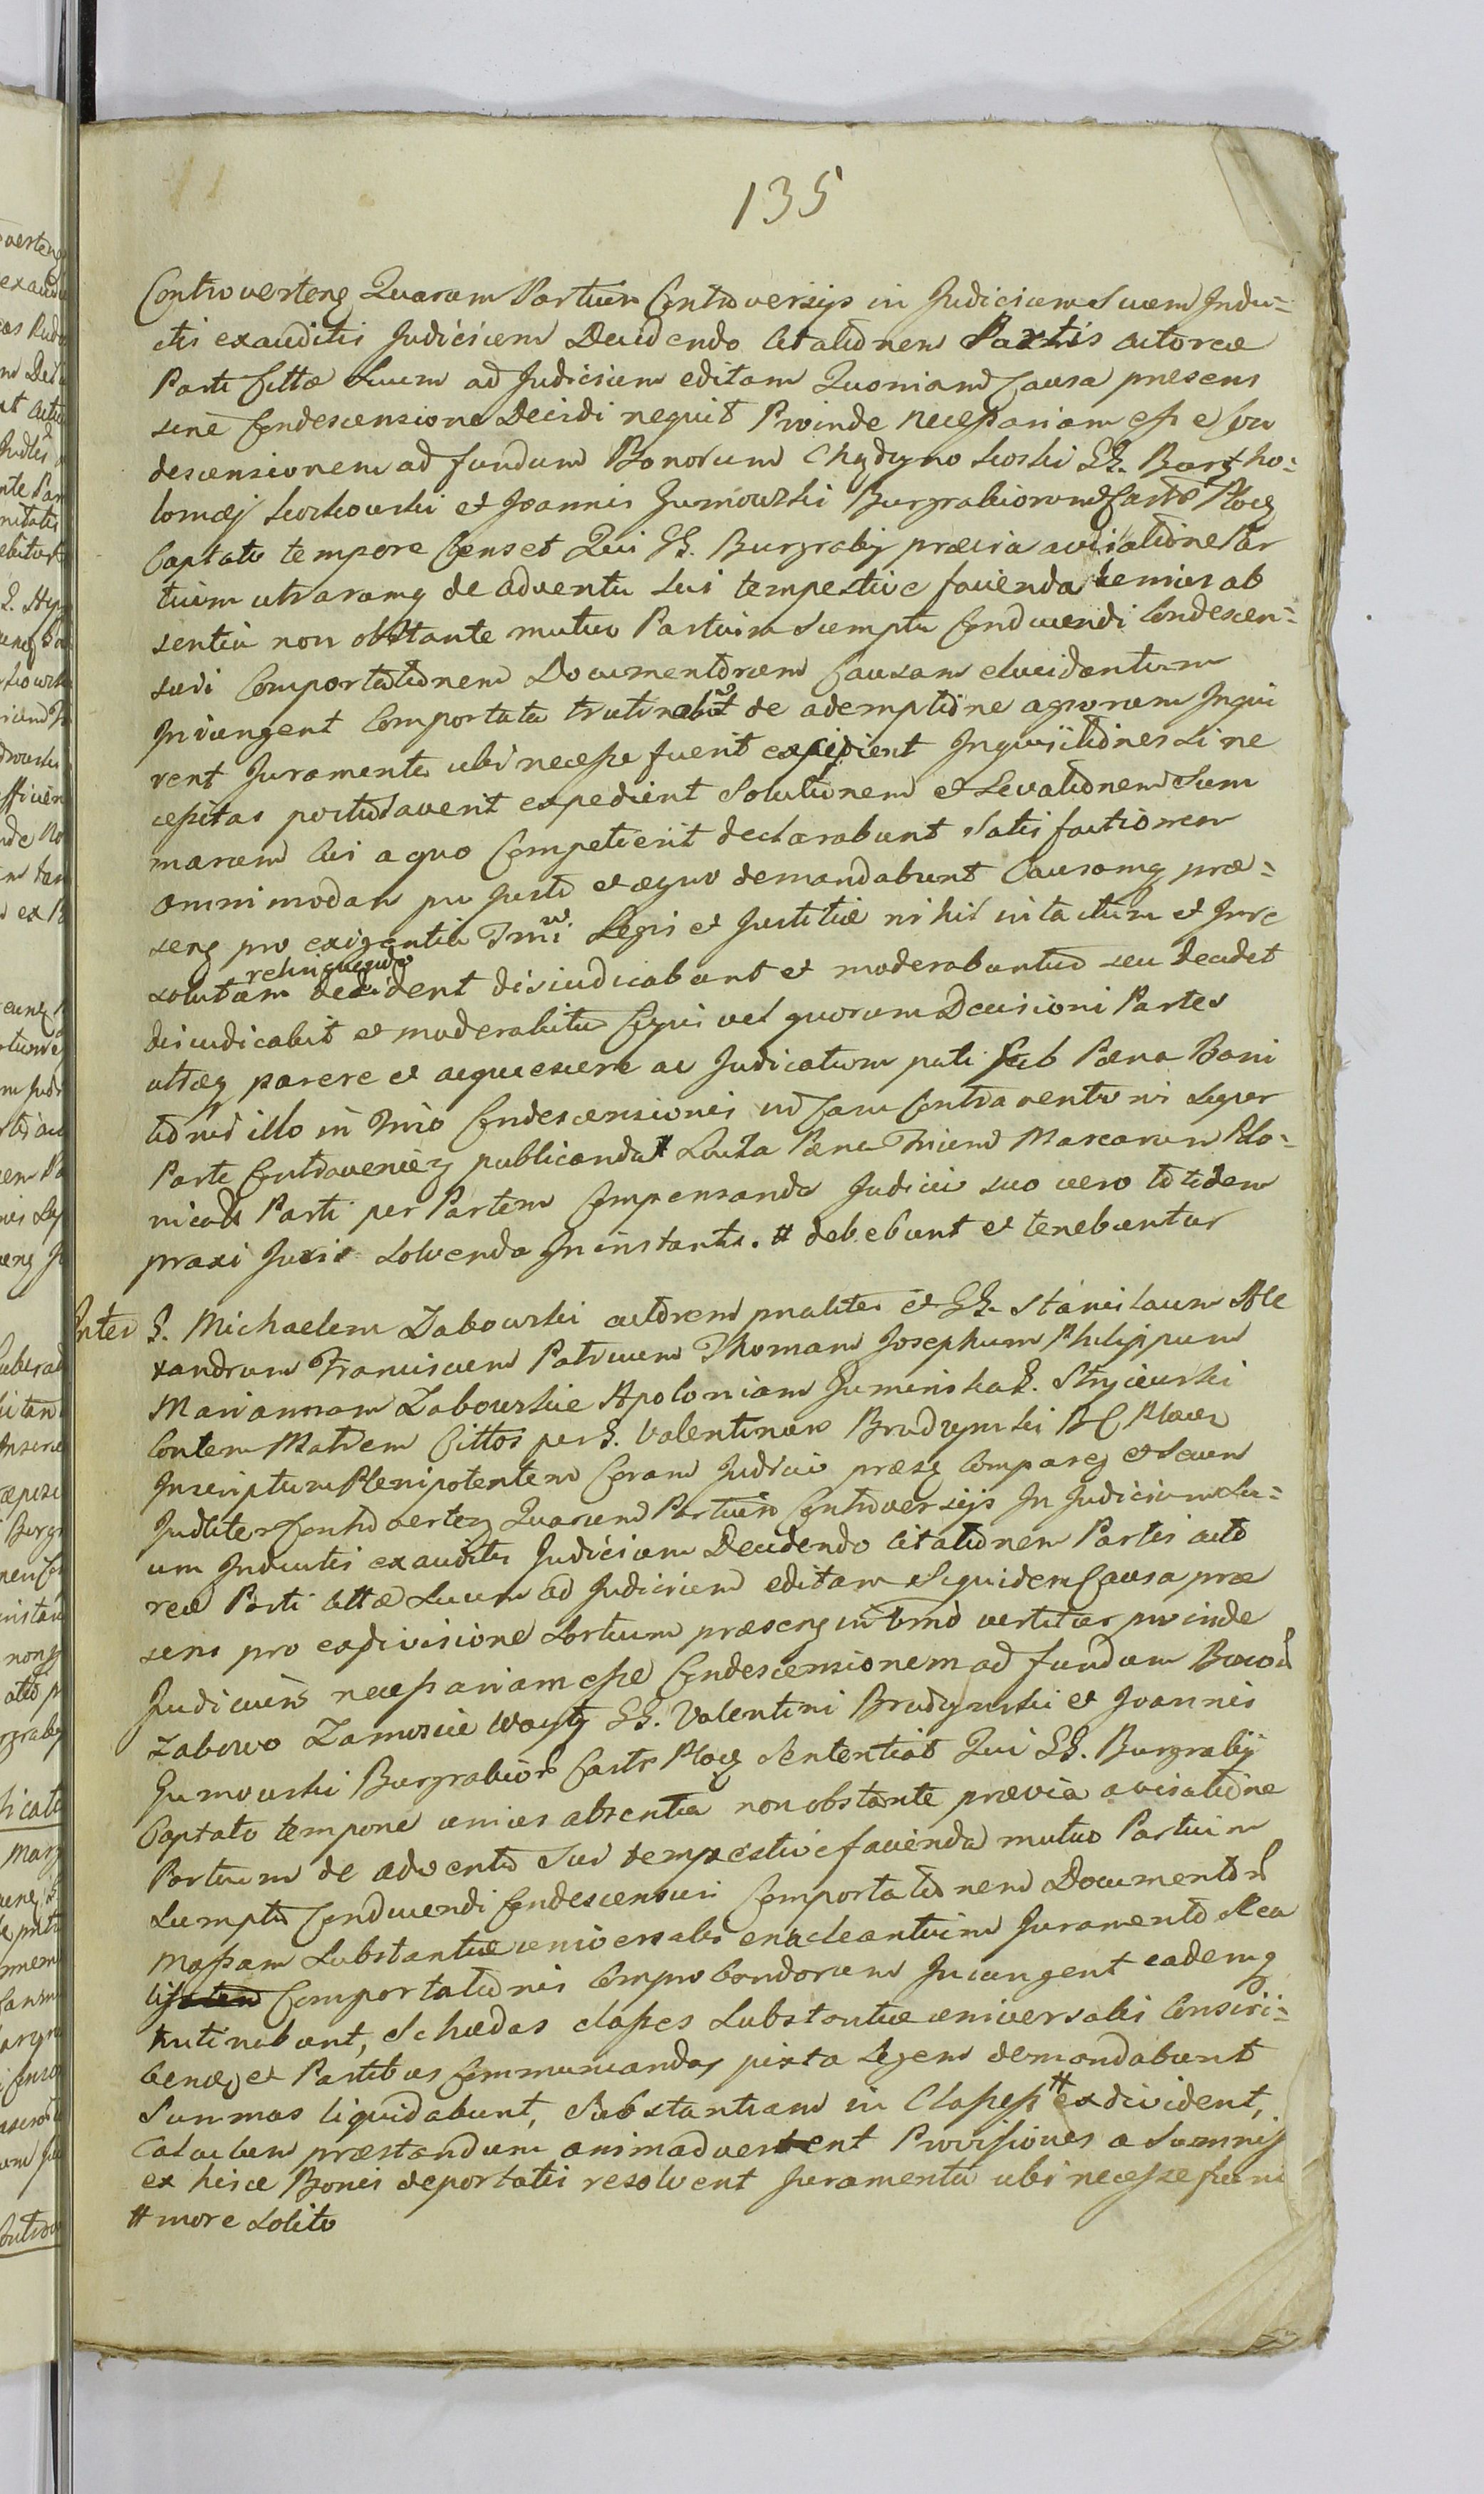 135
Controverteng Quarum Partium Controversijs in Judicium Suum Indu=
ctis exauditis Judicium Decidendo Citationem Partis actoreæ
Parti Cittæ Suum ad Judicium editam Quoniam Causa præsens
sine Condescensione Decidi nequit Proinde necessariam esse Con
descensionem ad fundum Bonorum Chydyno Suski GG. Bartho=
lomæj Suskowski et Joannis Gumowski Burgrabiorum Castr Plocg
Captato tempore Censet Qui GG. Burgrabij prævia avisatione Par
tium utrarumq de adventu sui tempestive facienda Unius ab
sentia non obstante mutuo Partium Sumptu Conducendi Condescen=
suri Comportationem Documentorum Causam elucidantium
Injungent Comportata trutinabūt de ademptione agrorum Inqui
rent Juramenta ubi necesse fuerit excipient Inquisitiones si ne
cessitas postulaverit expedient Solutionem et Levationem Sum
marum cui a quo Competierit declarabunt Satisfactionem
omnimodam pro justo et æquo demandabunt Causamq præ=
seng pro exigentia Tmi Legis et Justitiæ nihil intactum et Jure
relinquendo
solutum decident dijudicabunt et moderabuntur seu decidet
dijudicabit et moderabitur Cujus vel quorum Decisioni Partes
utræq parere et acquiescere ac Judicatum pati sub Pæna Bani
tionis illo in Tmio Condescensionis in Casu Contraventionis super
Parte Contravenieng publicanda # Lucta Pæna Trium Marcarum Polo=
nicali Parti per Partem Compensanda Judicii suo vero totidem
praxi Juris solvenda In instanti. # debebunt et tenebuntur
Inter G. Michaelem Zabowski actorem pnaliter et GG. Stanislaum Ale
xandrum Franciscum Patruum Thomam Josephum Philippum
Mariannam Zabowskie Apoloniam Guminska G. Stryjewski
Contem Matrem Cittos per G. Valentinum Brudzynski BC Plocen
Inscriptum Plenipotentem Coram Judicio præsg Compareg et Secum
Judliter Controverteg Quarum Partium Controversijs In Judicium Su=
um Inductis exauditis Judicium Decidendo Citationem Partis acto
reæ Parti Cittæ Suum ad Judicium editam Siquidem Causa præ
sens pro exdivisione Sortium præseng in Tmo vertitur proinde
Judicium necessariam esse Condescensionem ad fundum Bonor
Zabowo Zamoscie Wayty GG. Valentini Brudzynski et Joannis
Gumowski Burgrabior Castr Plocg Sententiat Qui GG. Burgrabij
Captato tempore unius absentia non obstante prævia avisatione
Partium de adventu Sui tempestive facienda mutuo Partium
Sumptu Conducendi Condescensuri Comportationem Documentor
Massam Substantiæ universalis enucleantium Juramento Rea
lis Comportationis Comprobandorum Injungent eademq
trutinabunt, Schedas classes Substantiæ universalis Conscri=
bend et Partibus Communicandas juxta Legem demandabunt
Summas liquidabunt, Substantiam in Classes # exdivident,
Calculum præstandum animadvertent Provisiones a Summis
ex hisce Bonis deportatis resolvent Juramenta ubi necesse fueri
# more Solito